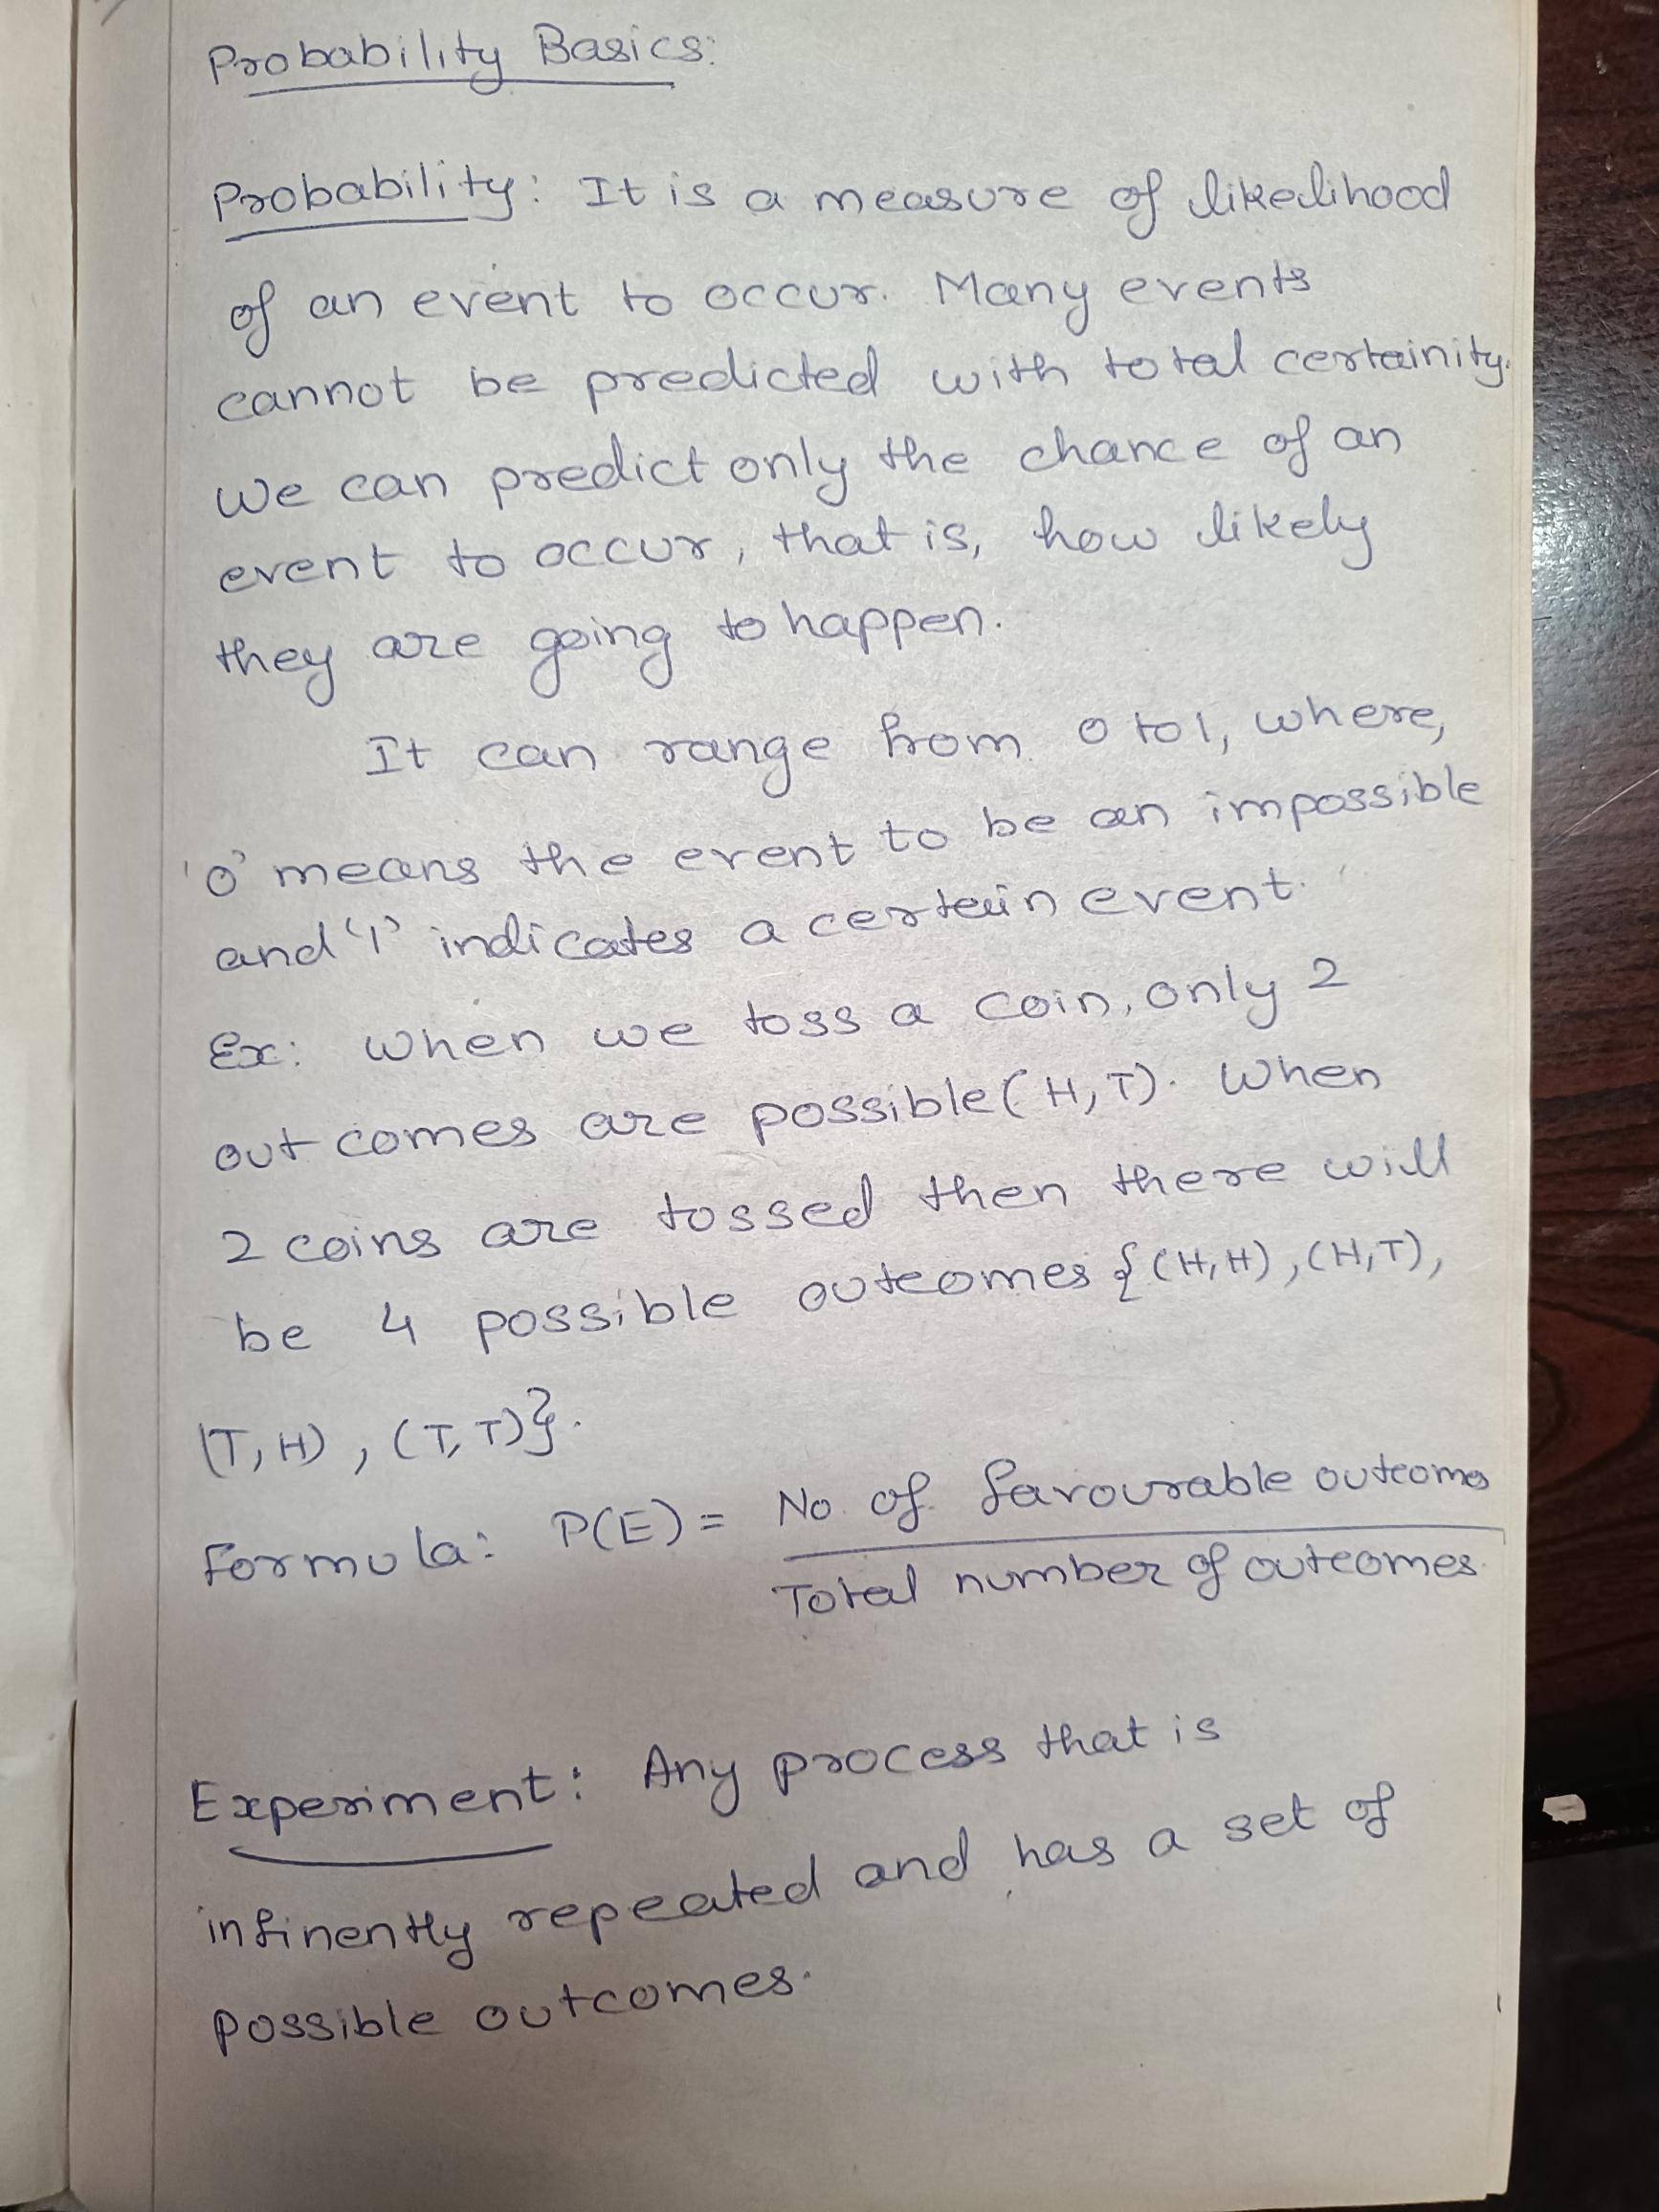 Probability Basics:
Probability: It is a measure of likelihood
of an event to occur. Many events
cannot be predicted with total certainity.
We can predict only the chance of an
event to occur, that is, how likely
they are going to happen.
It can range from 0 to 1, where,
'0' means the event to be an impossible
and '1' indicates a certain event.
Ex: When we toss a coin, only 2
outcomes are possible (H,T). When
2 coins are tossed then there will
be 4 possible outcomes {(H,H), (H,T),
(T,H), (T,T)}.
Formula: P(E) = No. of favourable outcomes
Total number of outcomes.
Experiment: Any process that is
infinently repeated and has a set of
possible outcomes.